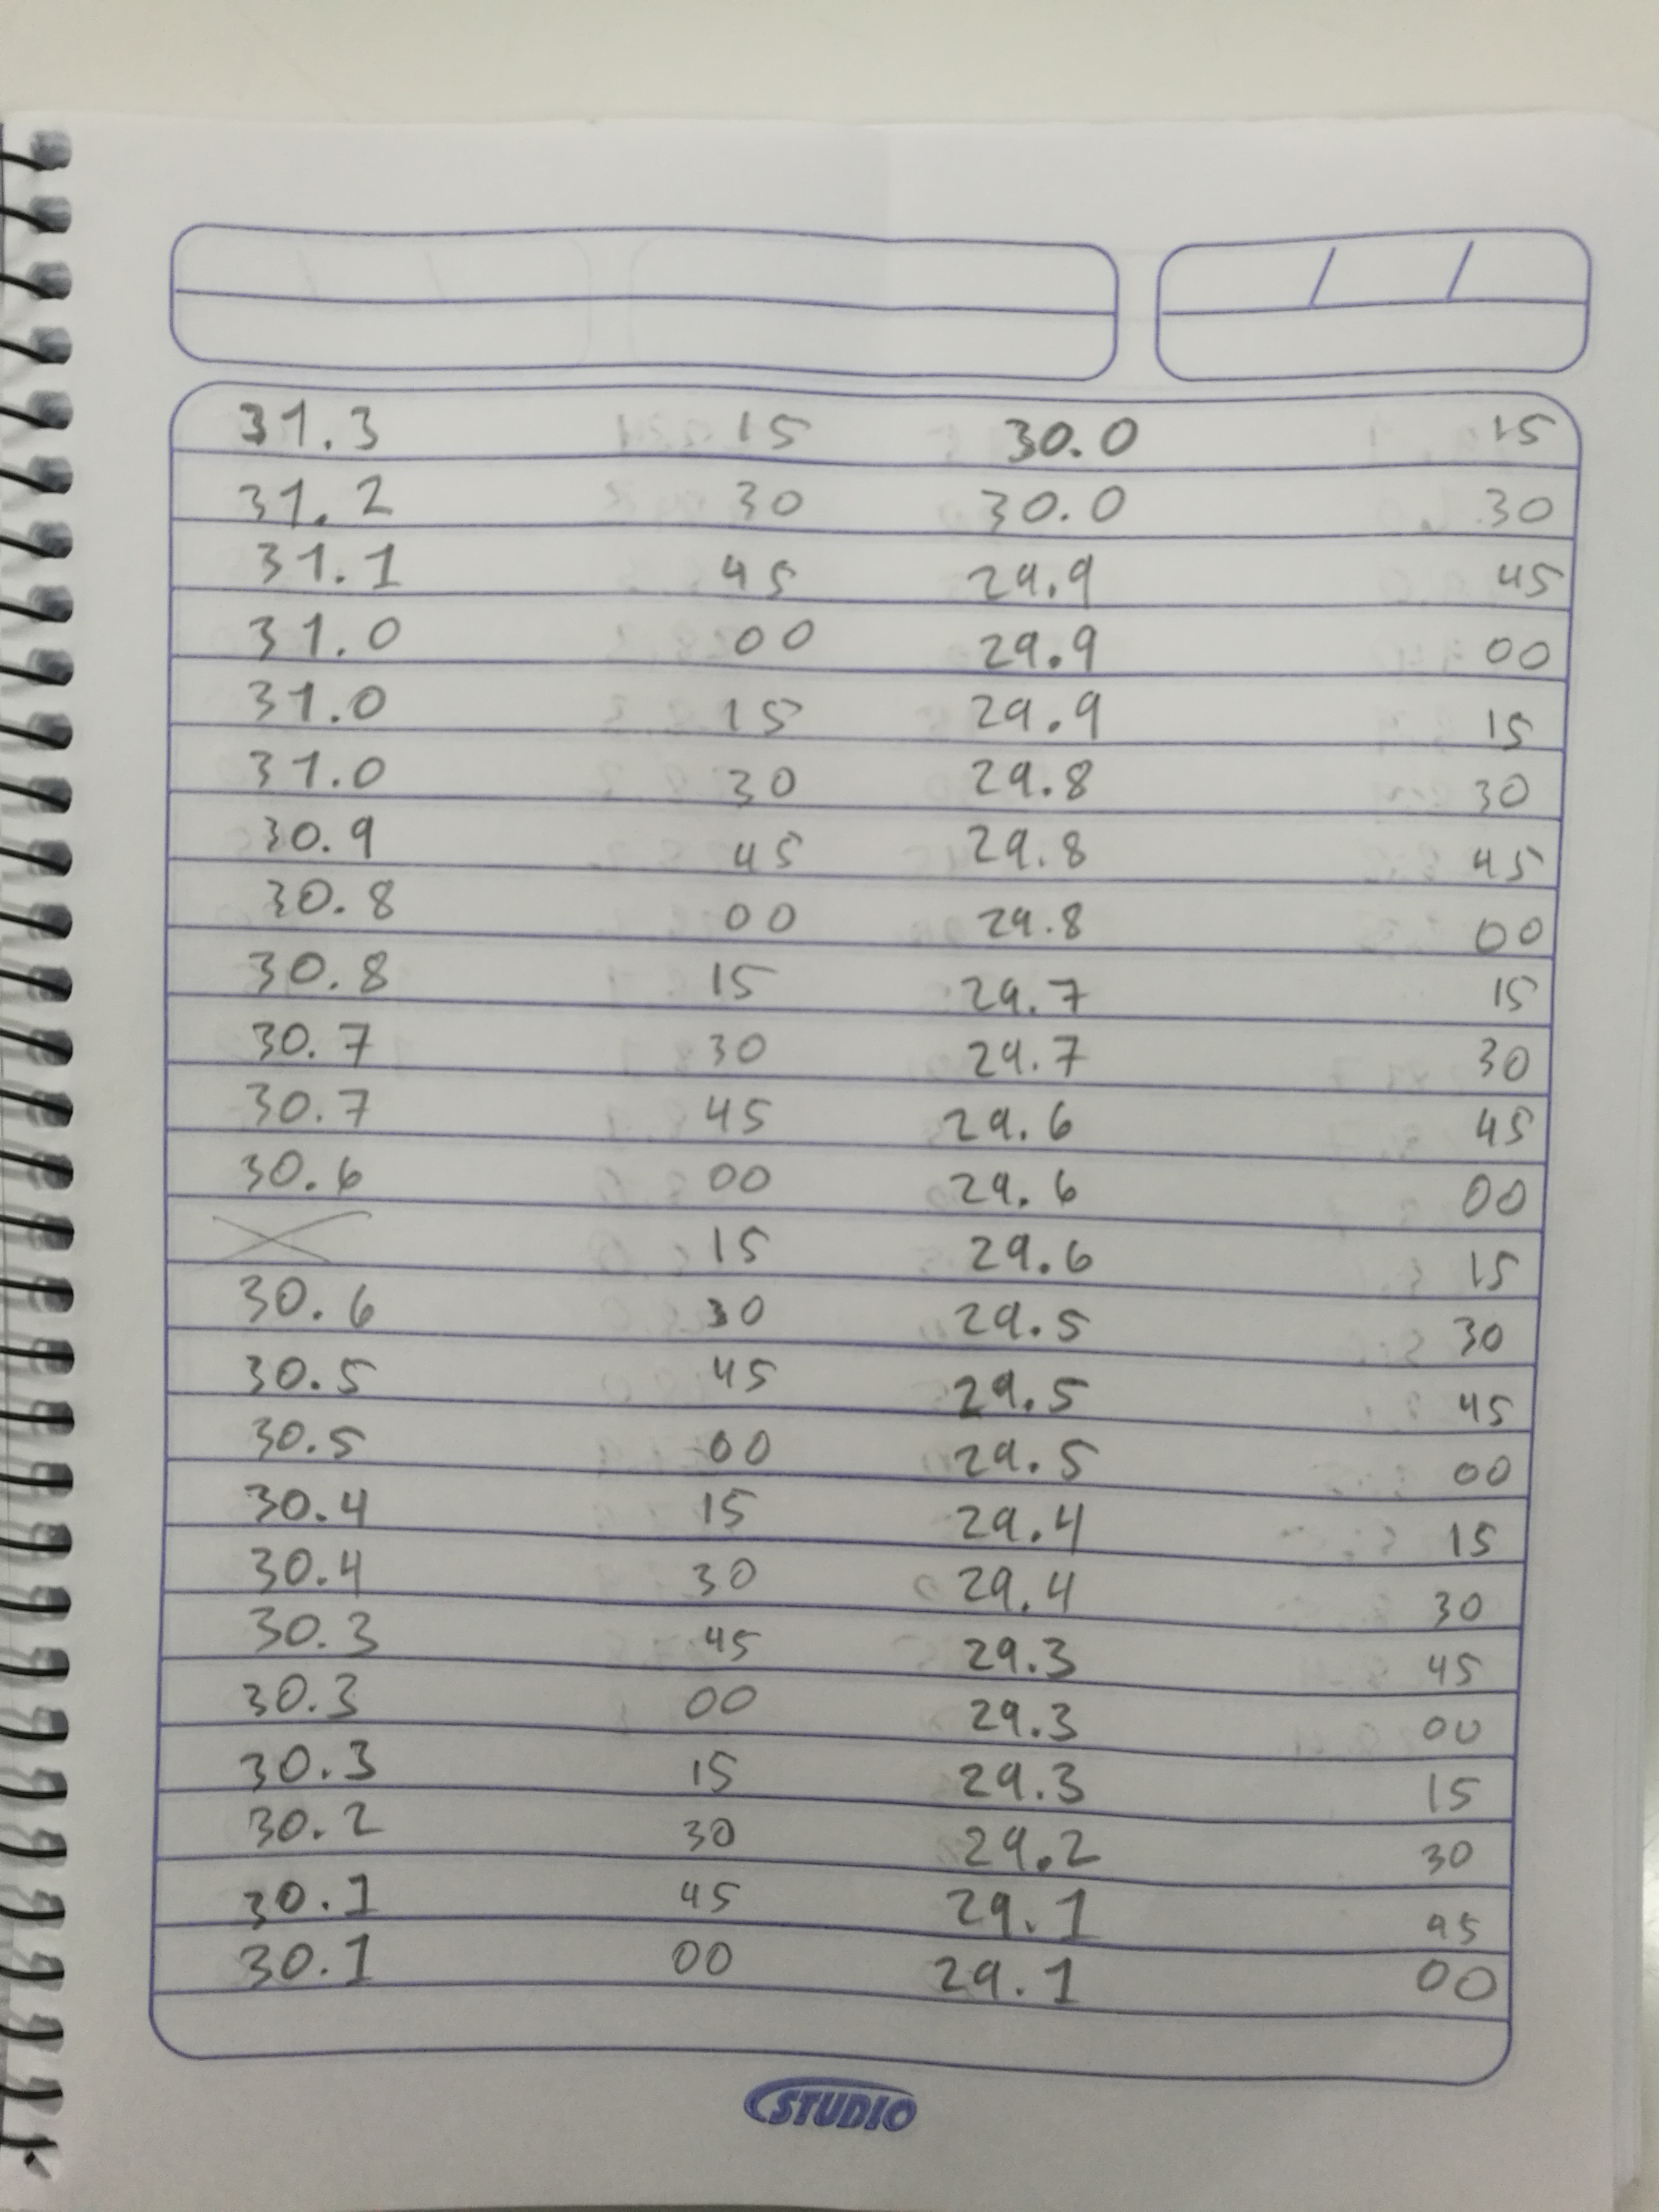 / /
31.3 15 30.0 15
31.2 30 30.0 30
31.1 45 29.9 45
31.0 00 29.9 00
31.0 15 29.9 15
31.0 30 29.8 30
30.9 45 29.8 45
30.8 00 29.8 00
30.8 15 29.7 15
30.7 30 29.7 30
30.7 45 29.6 45
30.6 00 29.6 00
15 29.6 15
30.6 30 29.5 30
30.5 45 29.5 45
30.5 00 29.5 00
30.4 15 29.4 15
30.4 30 29.4 30
30.3 45 29.3 45
30.3 00 29.3 00
30.3 15 29.3 15
30.2 30 29.2 30
30.1 45 29.1 45
30.1 00 29.1 00
STUDIO